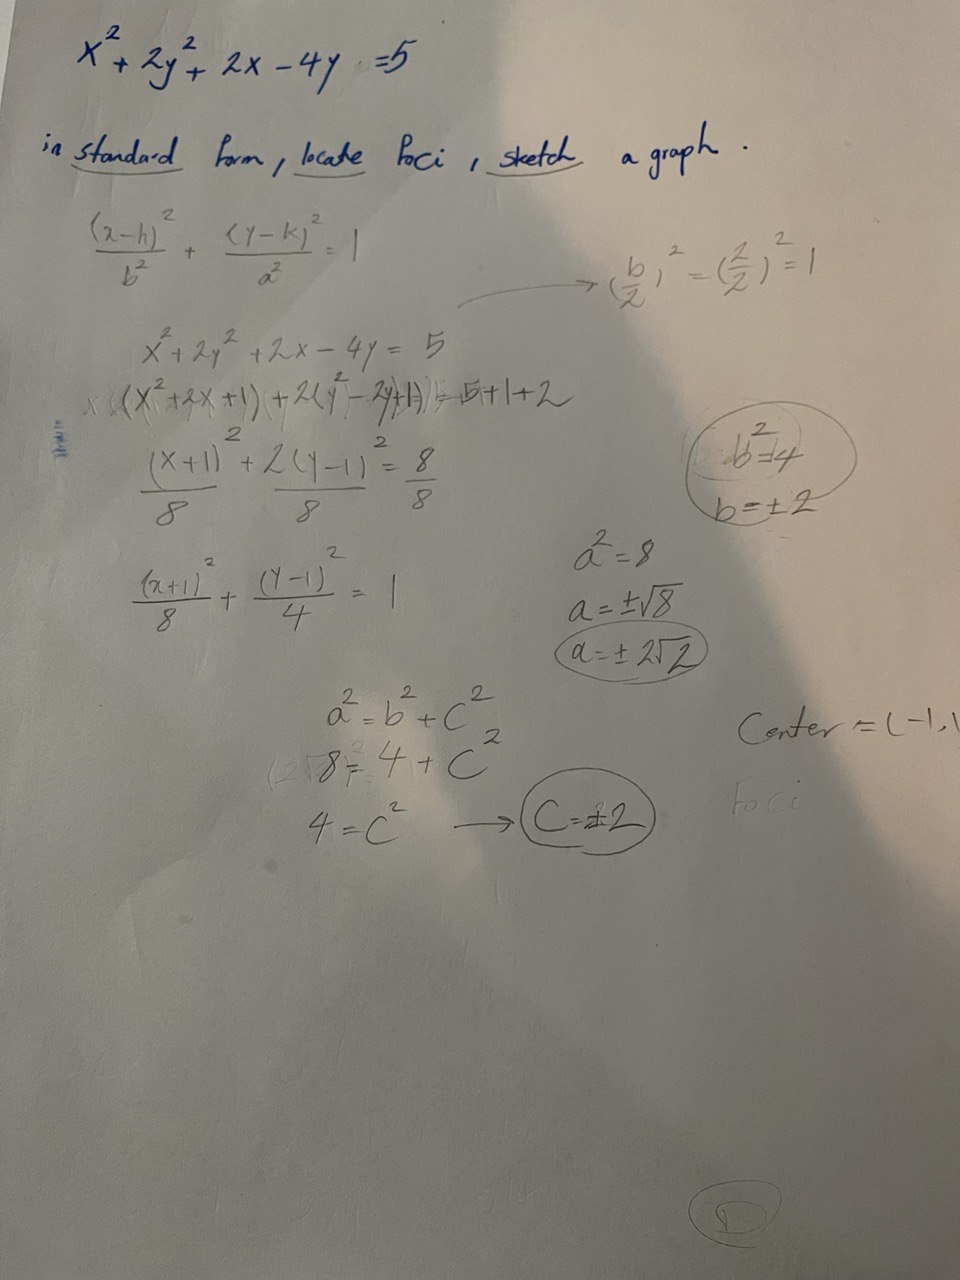 x² + 2y² + 2x - 4y = 5
in standard form, locate foci, sketch a graph.
(x-h)²/b² + (y-k)²/a² = 1
(b/2)² = (2/2)² = 1
x² + 2y² + 2x - 4y = 5
(x² + 2x + 1) + 2(y² - 2y + 1) = 5 + 1 + 2
(x+1)²/8 + 2(y-1)²/8 = 8/8
b² = 4
b = ±2
(x+1)²/8 + (y-1)²/4 = 1
a² = 8
a = ±√8
a = ±2√2
a² = b² + c²
8 = 4 + c²
4 = c² → c = ±2
Center = (-1,1
Foci
D